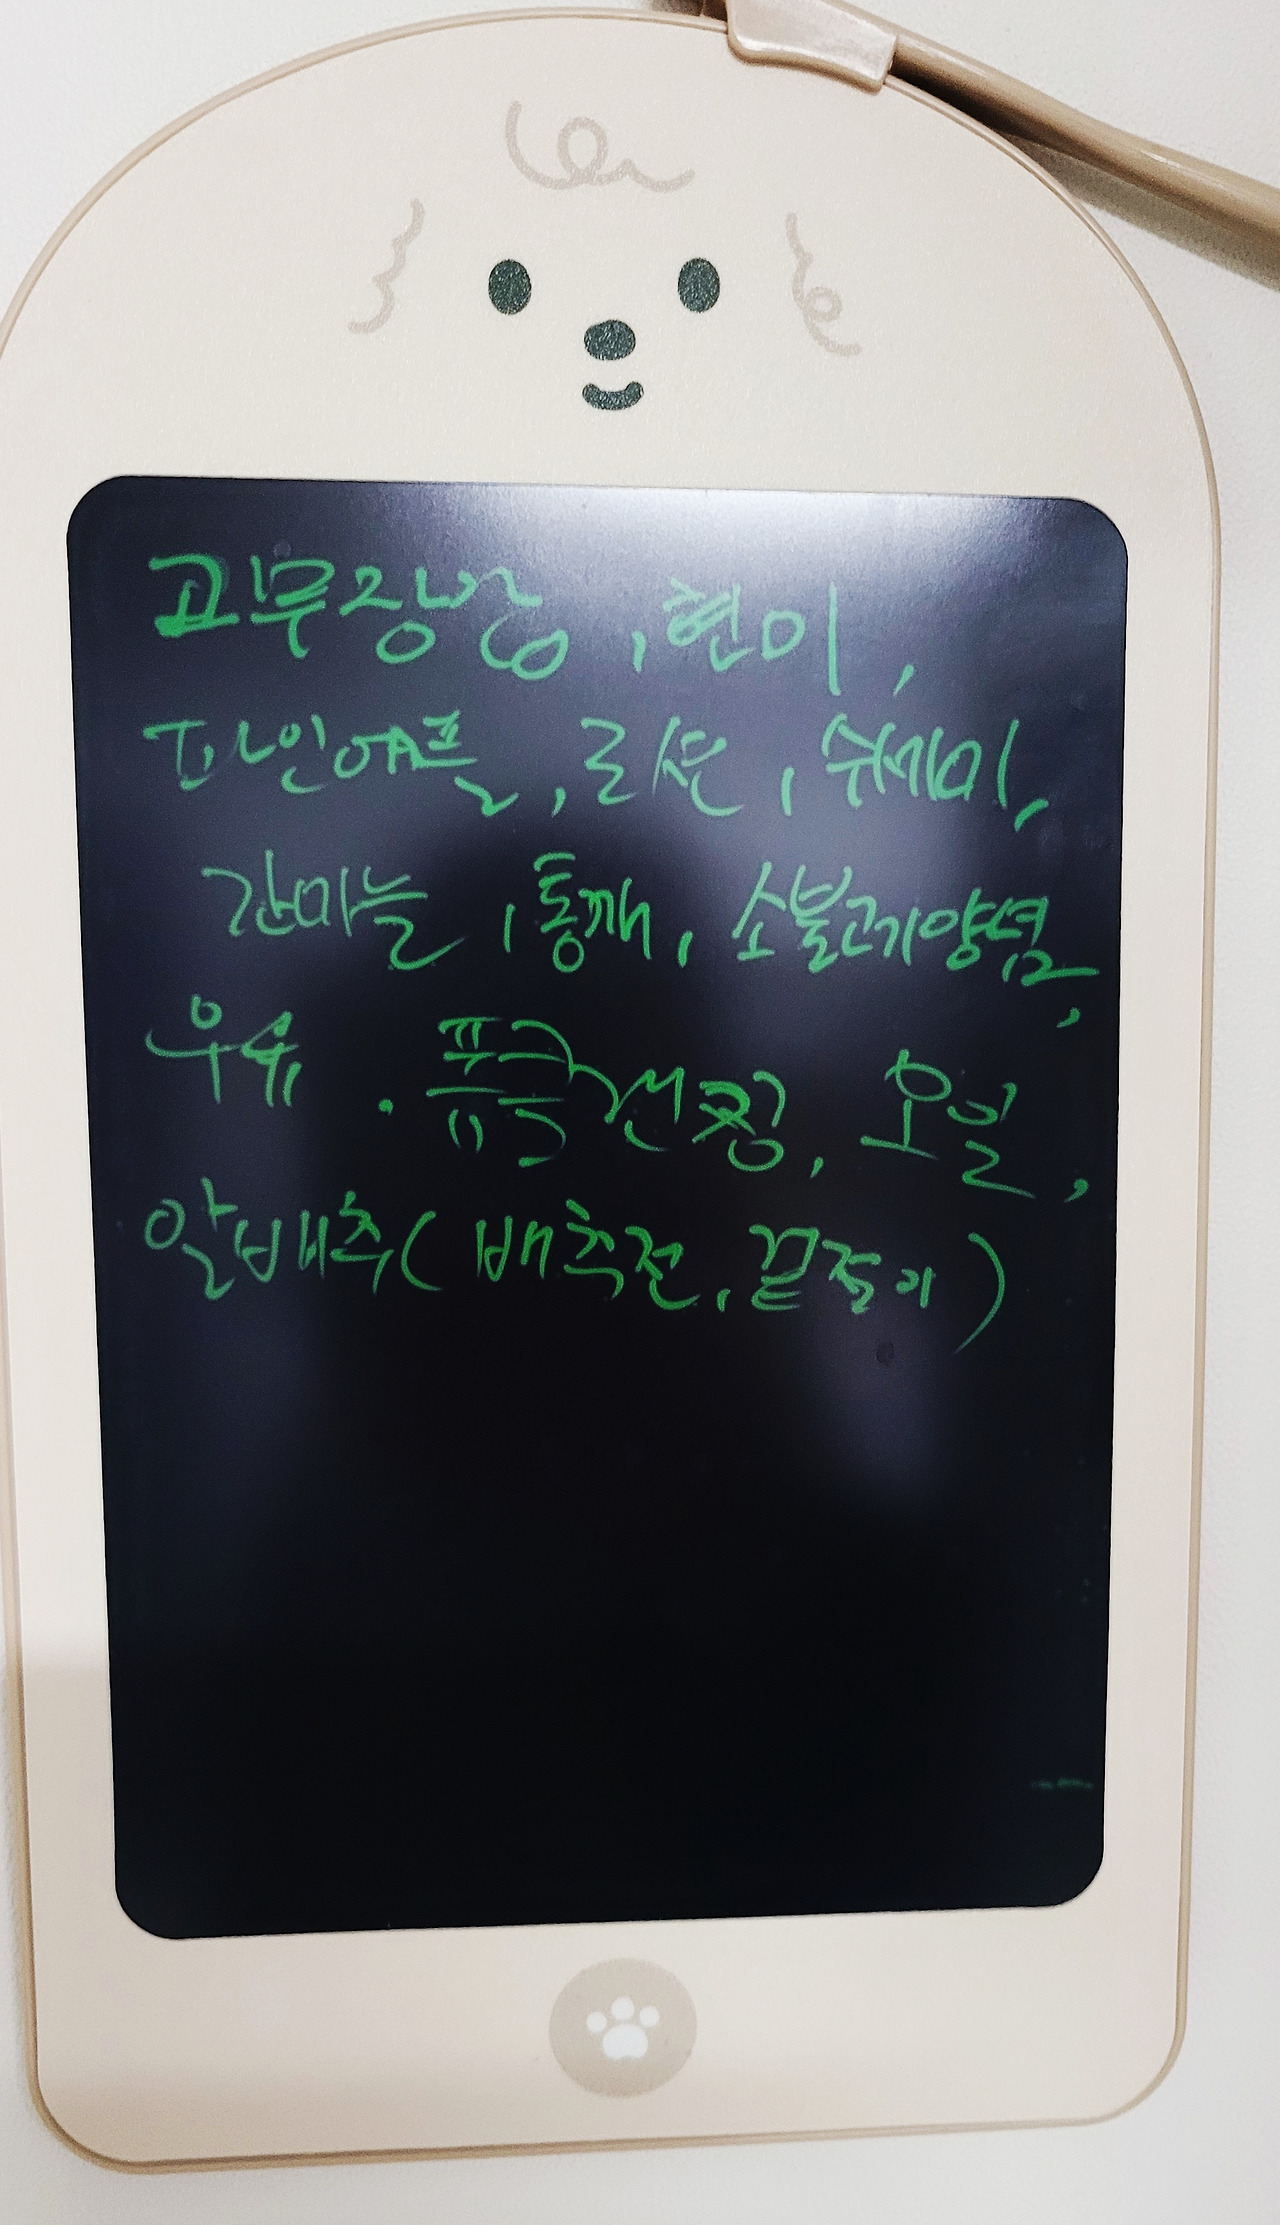 고무장갑, 현미,
파인애플, 로션, 수세미,
간마늘, 통깨, 소불고기양념,
우유. 폼클렌징, 오일,
알배추(배추전, 겉절이)